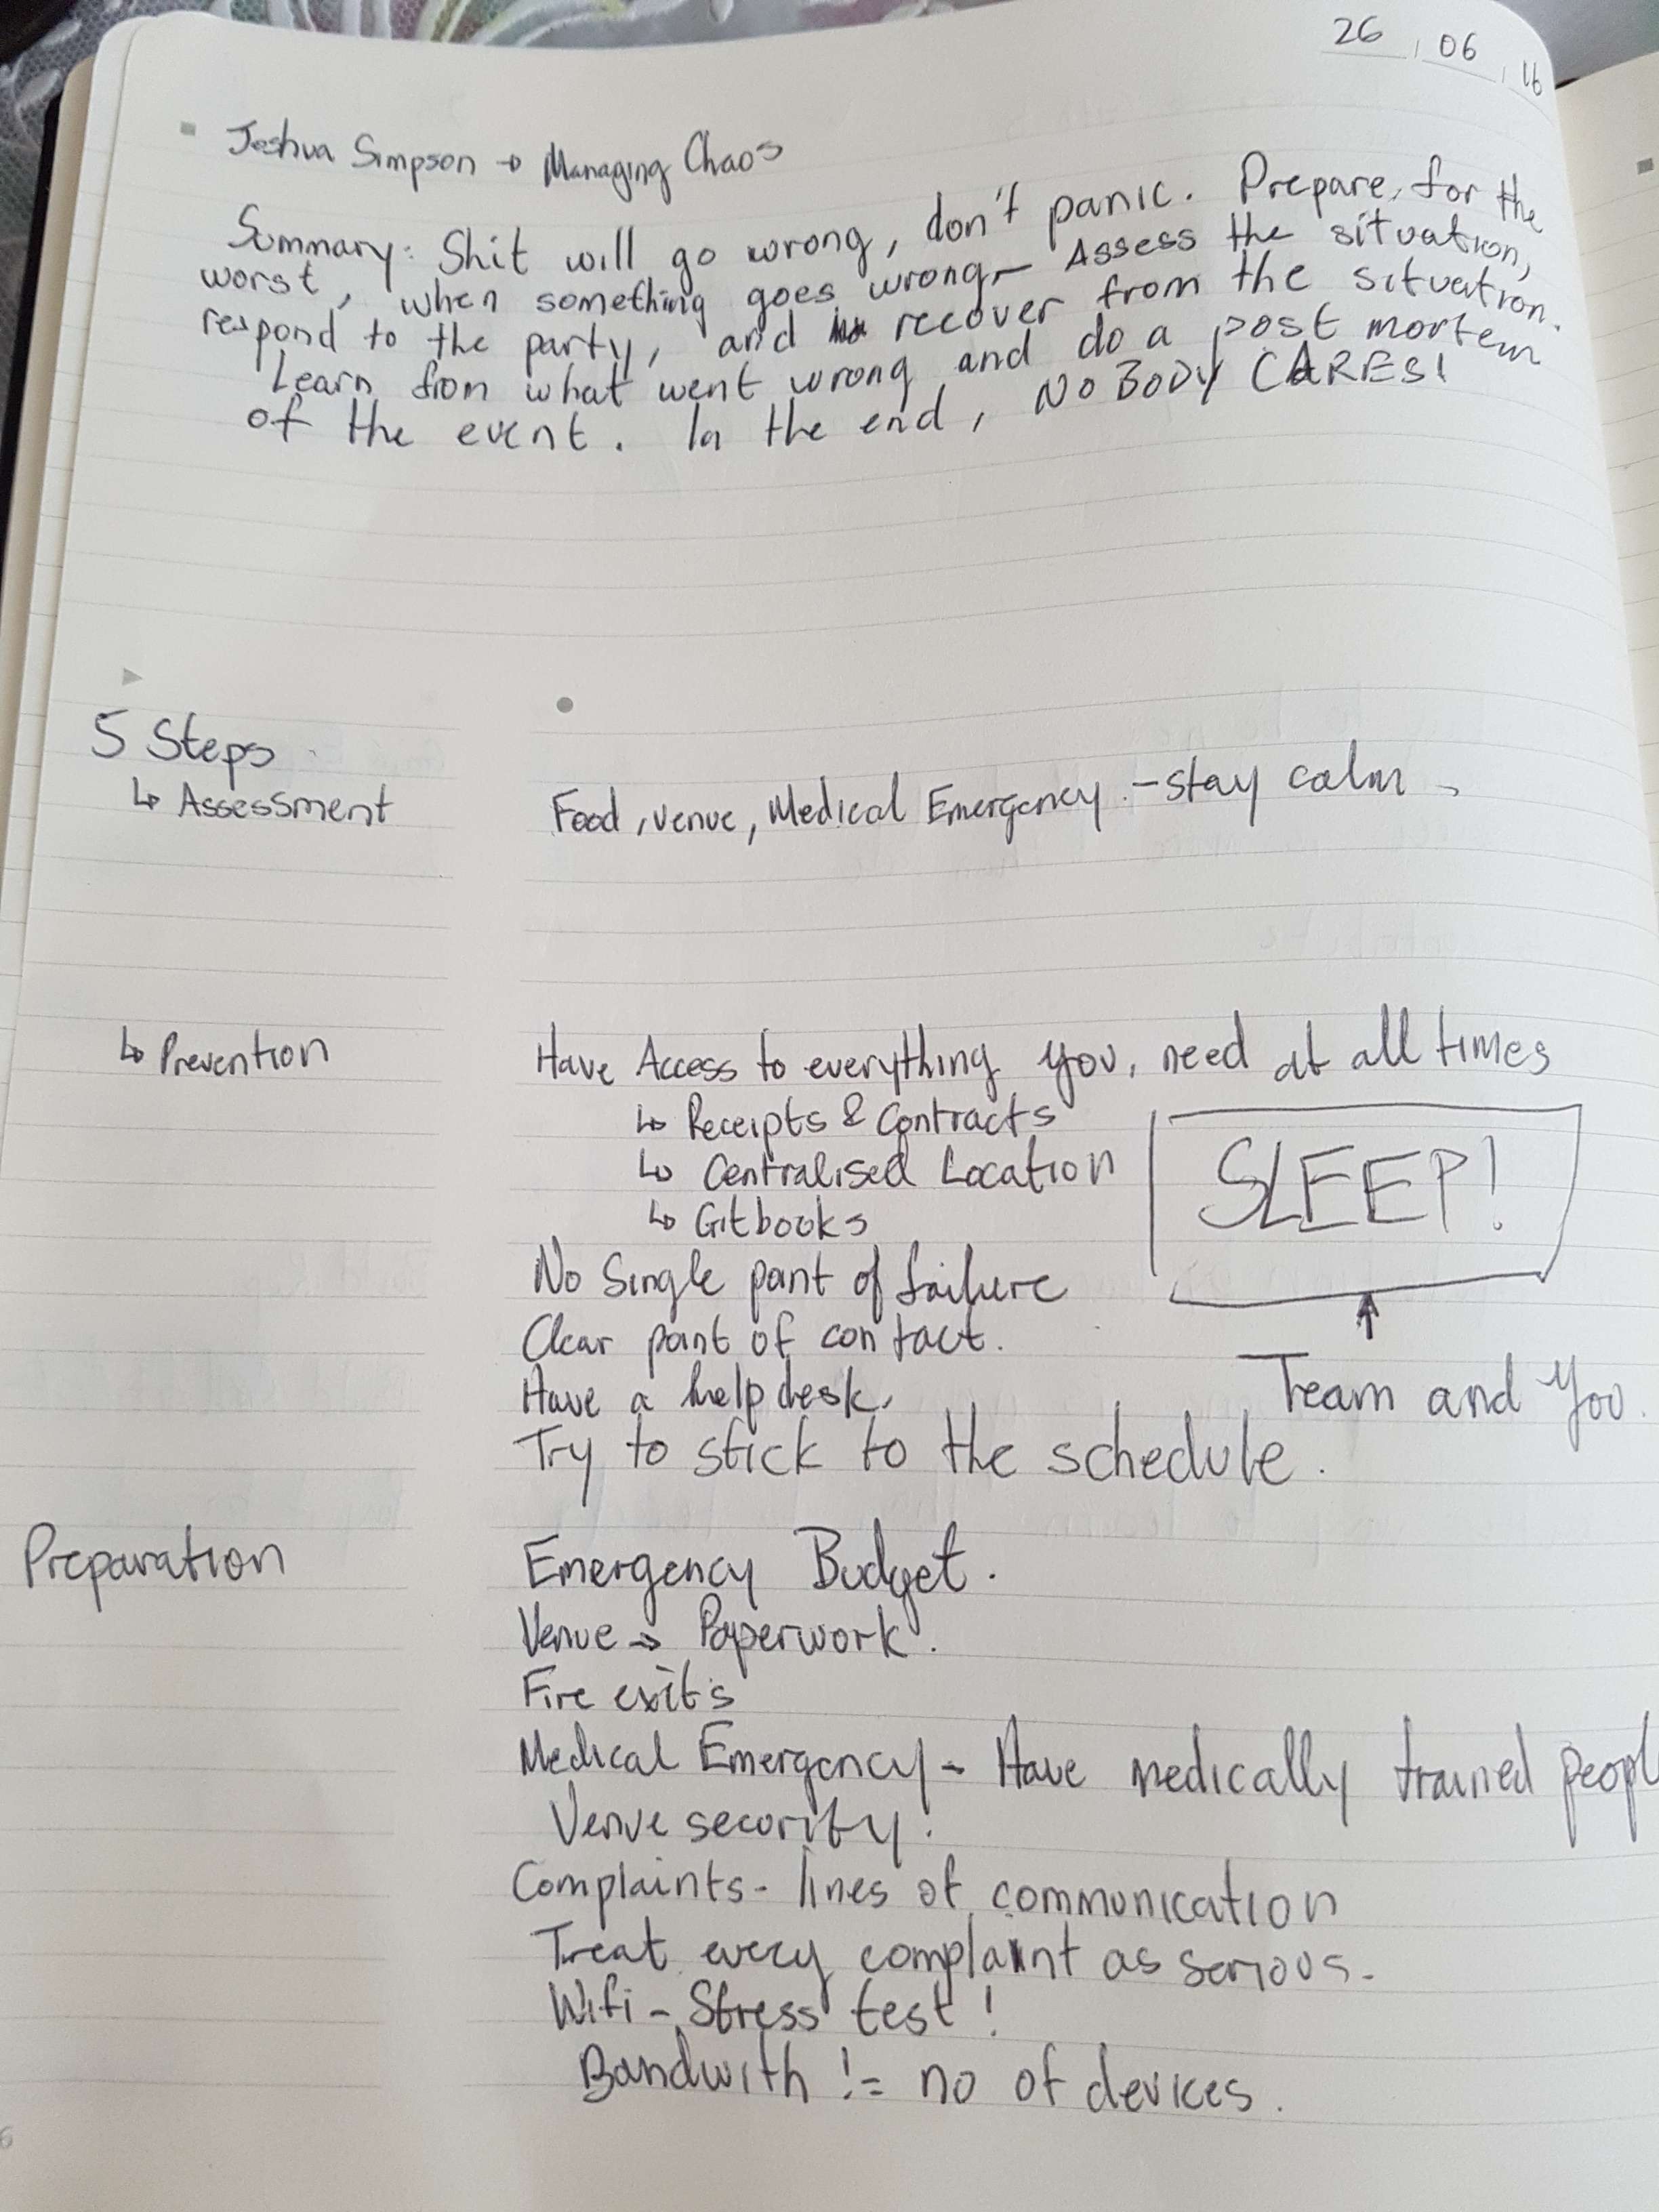 26 06 16
Joshua Simpson → Managing Chaos
Summary: Shit will go wrong, don't panic. Prepare for the
worst, when something goes wrong - Assess the situation,
respond to the party, and recover from the situation.
Learn from what went wrong and do a post mortem
of the event. In the end, NOBODY CARES!
5 Steps
↳ Assessment
Food, venue, Medical Emergency. - stay calm
↳ Prevention
Have Access to everything you need at all times
↳ Receipts & Contracts
↳ Centralised Location
↳ Gitbooks
SLEEP!
↑
Team and You.
No Single point of failure
Clear point of contact.
Have a help desk.
Try to stick to the schedule.
Preparation
Emergency Budget.
Venue → Paperwork.
Fire exit's
Medical Emergency - Have medically trained peopl
Venue security!
Complaints - lines of communication
Treat every complaint as serious.
Wifi - Stress test!
Bandwith != no of devices.
6